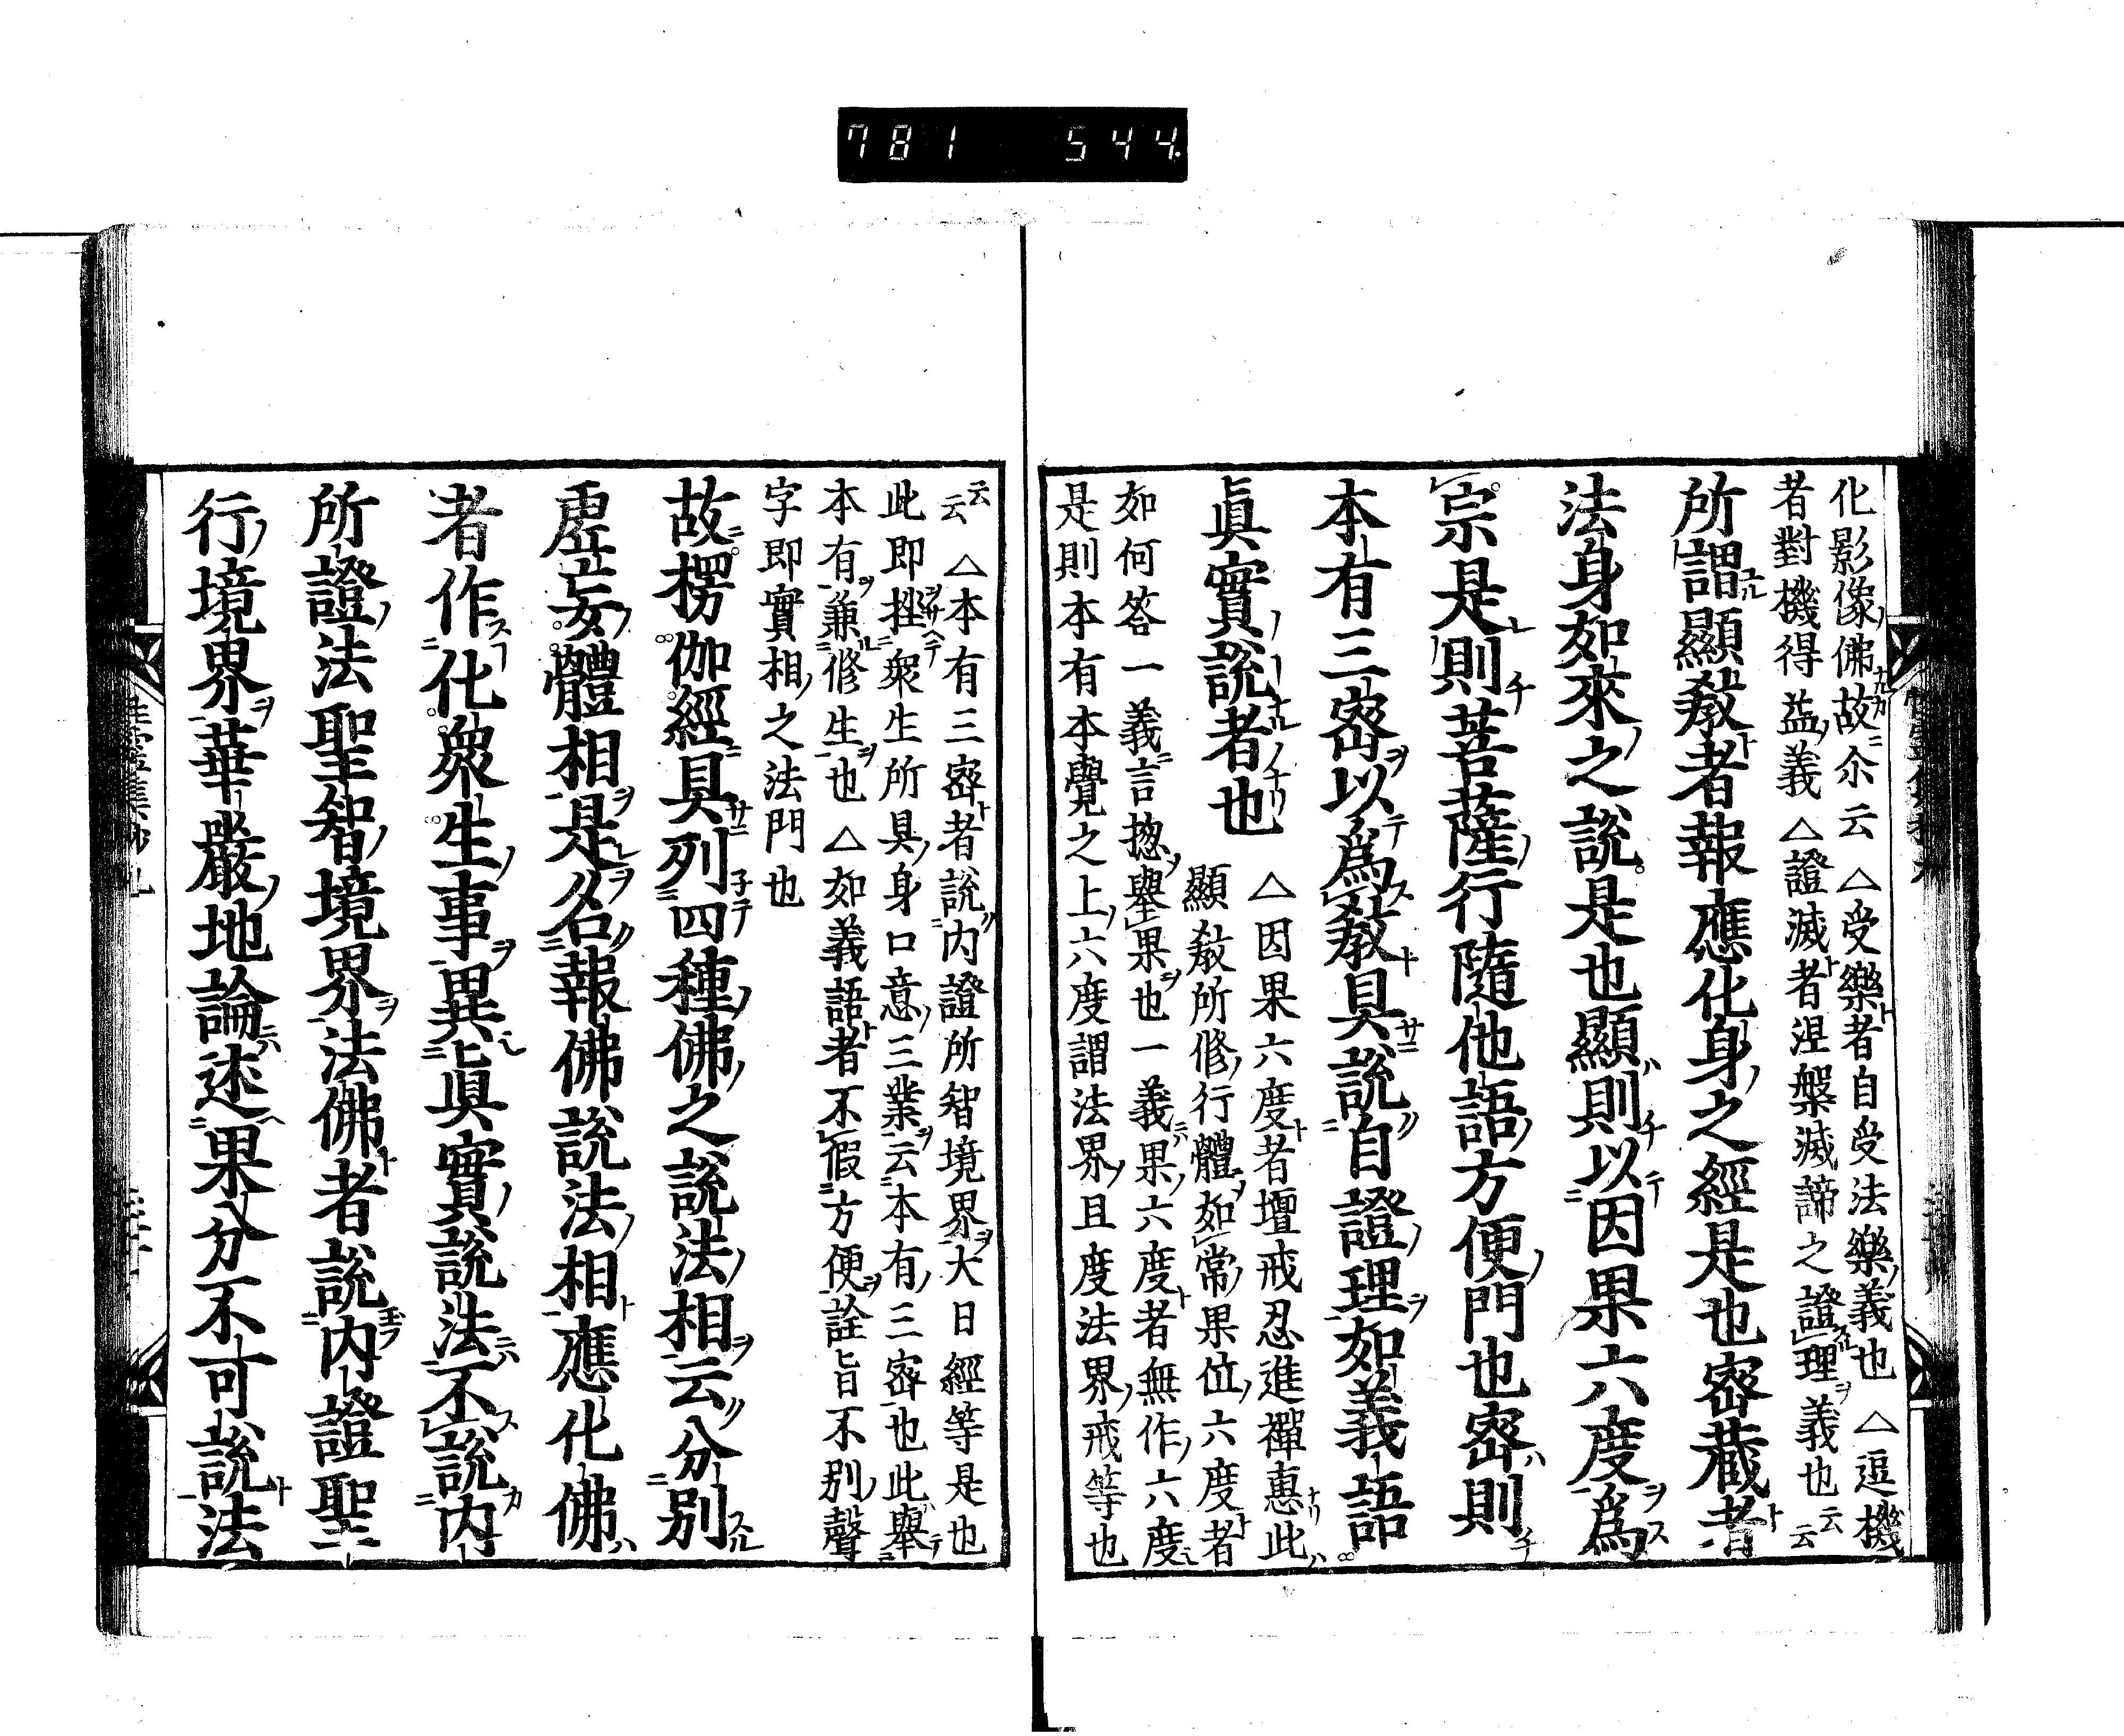 781 544.
化影像佛故尒云△受樂者自受法樂義也△逗機
者對機得益義△證滅者涅槃滅諦之證理義也云云
所謂顯教者報應化身之經是也密藏者
法身如來之說是也顯則以因果六度爲
宗是則菩薩行隨他語方便門也密則
本有三密以爲教具說自證理如義語
眞實說者也
△因果六度者壇戒忍進禪惠此
顯教所修行體如常果位六度者
如何答一義言揔舉果也一義果六度者無作六度
是則本有本覺之上六度謂法界且度法界戒等也
云云△本有三密者說内證所智境界大日經等是也
此即挫衆生所具身口意三業云本有三密也此舉
本有兼修生也△如義語者不假方便詮旨不别聲
字即實相之法門也
故楞伽經具列四種佛之說法相云分别
虛妄體相是名報佛說法相應化佛
者作化衆生事異眞實說法不說内
所證法聖智境界法佛者說内證聖
行境界華嚴地論述果分不可說法